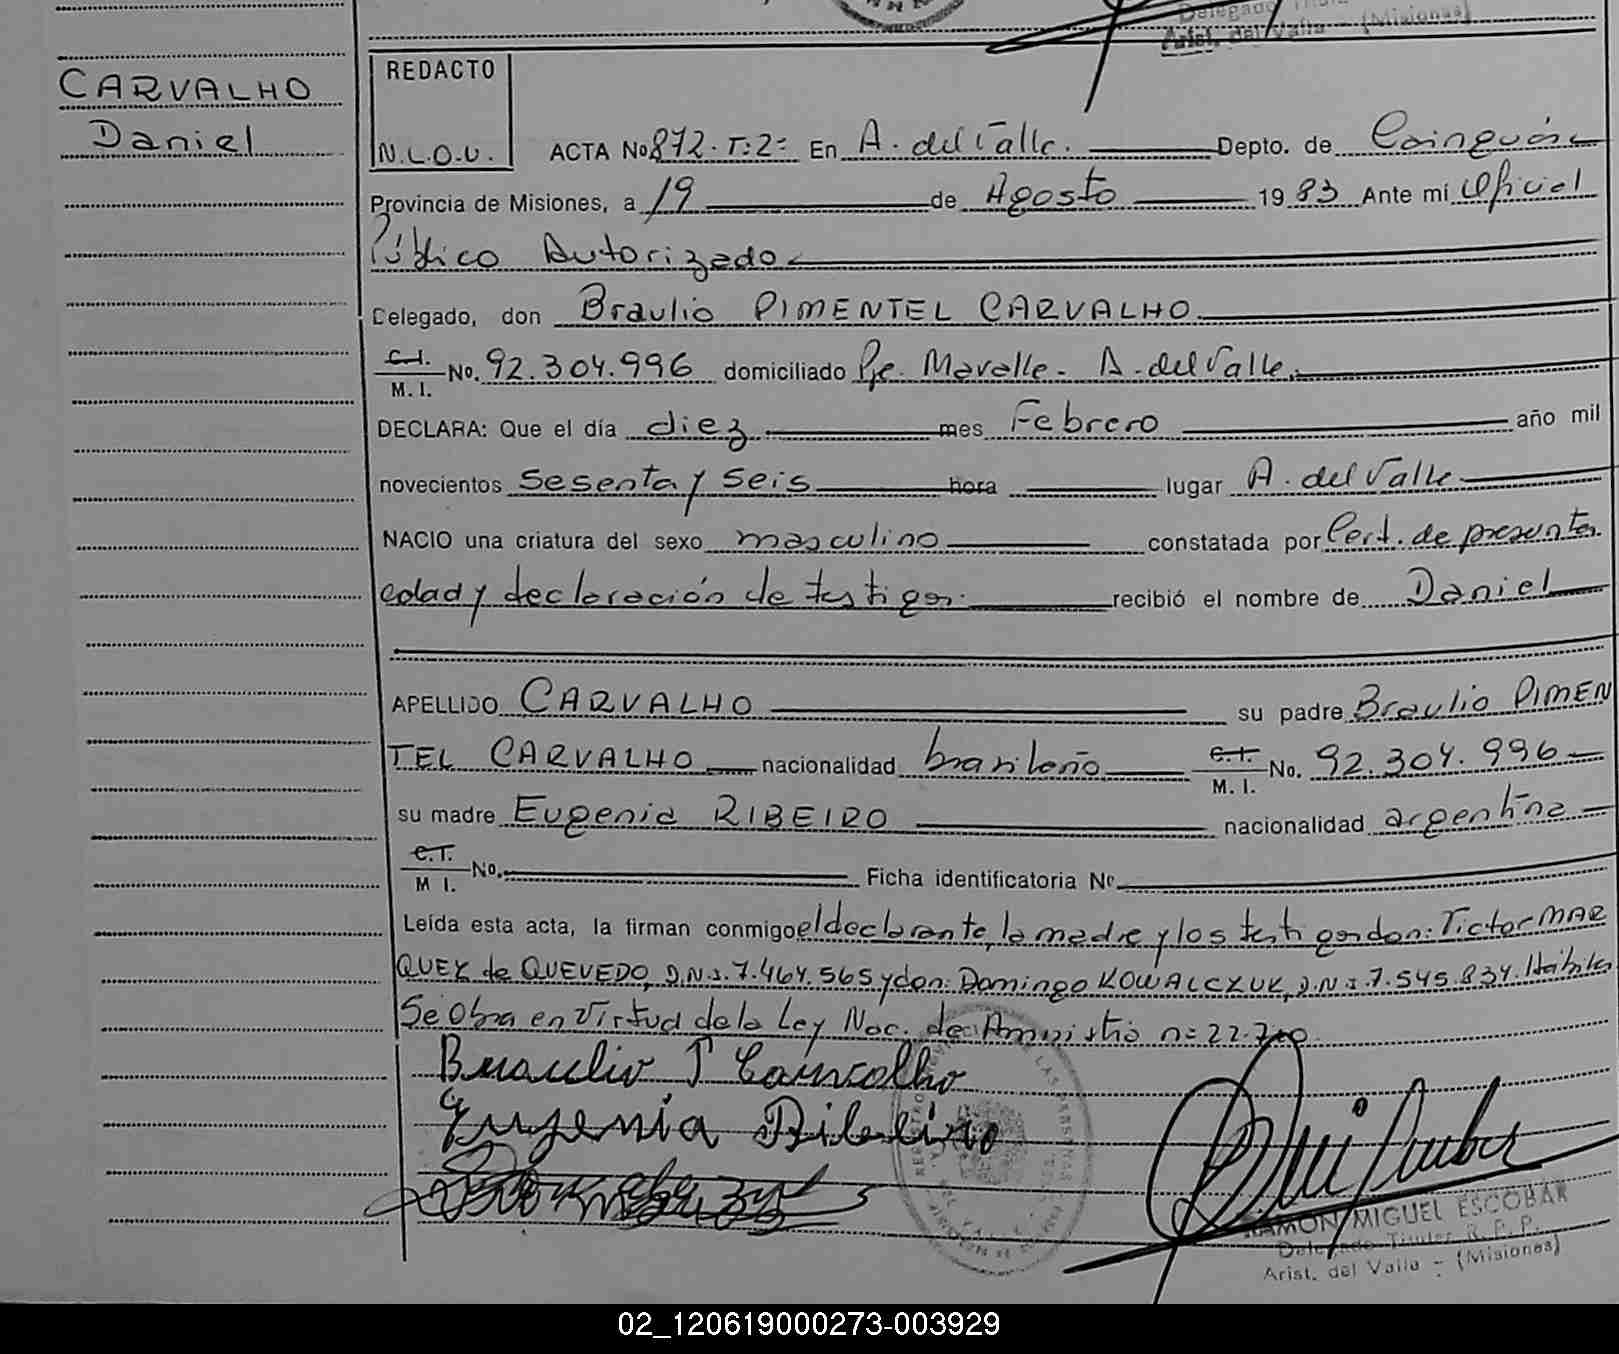 Delegado Titular
Arist. del Valle - (Misiones)
CARVALHO
Daniel
REDACTO
N.L.O.V.
ACTA No 872. T: 2º En A. del Valle. Depto. de Cainguás
Provincia de Misiones, a 19 de Agosto 1983 Ante mi Oficial
Público Autorizado
Delegado, don Braulio PIMENTEL CARVALHO
C.I.
M. I. No. 92.304.996 domiciliado Pje. Mavalle - A. del Valle.
DECLARA: Que el día diez mes Febrero año mil
novecientos sesenta y seis hora lugar A. del Valle
NACIO una criatura del sexo masculino constatada por Cert. de presunta
edad y declaración de testigos. recibió el nombre de Daniel
APELLIDO CARVALHO su padre Braulio PIMEN
TEL CARVALHO nacionalidad brasileño C.I.
M. I. No. 92.304.996
su madre Eugenia RIBEIRO nacionalidad argentina
C.I.
M I. No. Ficha identificatoria Nº
Leída esta acta, la firman conmigo el declarante, la madre y los testigos don: Victor MAR
QUEZ de QUEVEDO, D.N.I. 7.464.565 y don: Domingo KOWALCZUK, D.N.I. 7.545.834. Hábiles
Se Obra en Virtud de la Ley Nac. de Amnistía nº 22.700
Braulio P Carvalho
Eugenia Ribeiro
RAMON MIGUEL ESCOBAR
Delegado Titular R. P. P.
Arist. del Valle - (Misiones)
02_120619000273-003929